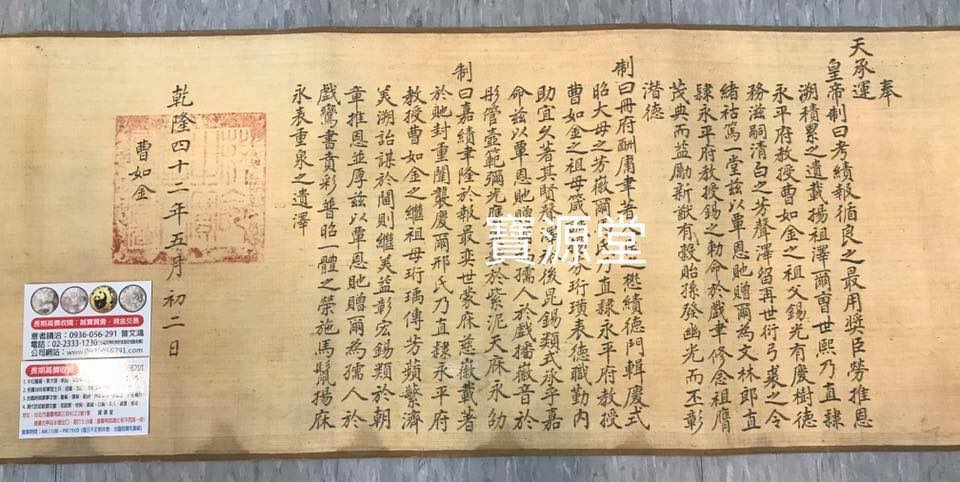 奉
天承運
皇帝制曰考績報循良之最用獎臣勞推恩
溯積累之遺載揚祖澤爾曹世熙乃直隸
永平府教授曹如金之祖父錫光有慶樹德
務滋嗣清白之芳聲澤留再世衍弓裘之令
緒祜篤一堂茲以覃恩貤贈爾為文林郎直
隸永平府教授錫之勅命於戲聿修念祖膺
茂典而益勵新猷有穀貽孫發幽光而丕彰
潛德
制曰冊府酬庸聿著之懋績德門輯慶式
昭大母之芳徽爾氏乃直隸永平府教授
曹如金之祖母箴芬珩璜表德職勤內
助宜久著其賢聲澤後昆錫類式承乎嘉
命茲以覃恩貤贈孺人於戲播徽音於
彤管壼範彌光膺於紫泥天庥永劭
制曰嘉績聿隆於報最奕世蒙庥慈徽載著
於貤封重闈襲慶爾邢氏乃直隸永平府
教授曹如金之繼祖母珩瑀傳芳蘋蘩濟
美溯詒謀於閫則繼美益彰宏錫類於朝
章推恩並厚茲以覃恩貤贈爾為孺人於
戲鸞書賁彩普昭一體之榮施馬鬣揚庥
永表重泉之遺澤
乾隆四十二年五月初二日
曹如金
寶源堂
長期高價收購：誠實買賣，現金交易
意者請洽：0936-056-291 曾文鴻
電話：02-2333-1230
公司網站：
長期高價收購